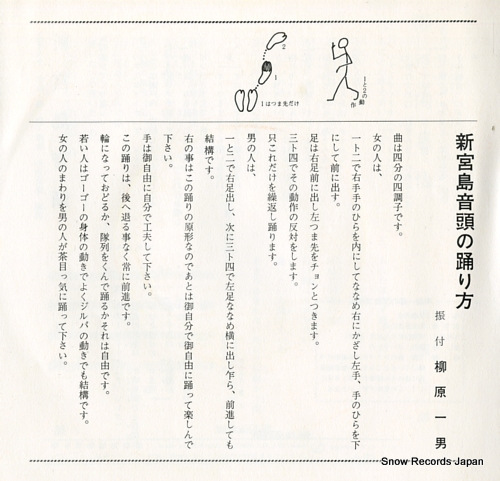 2
1
1はつま先だけ
1と2の動作
新宮島音頭の踊り方
振付 柳原一男
曲は四分の四調子です。
女の人は、
一ト二で右手手のひらを内にしてななめ右にかざし左手、手のひらを下
にして前に出す。
足は右足前に出し左つま先をチョンとつきます。
三ト四でその動作の反対をします。
只これだけを繰返し踊ります。
男の人は、
一と二で右足出し、次に三ト四で左足ななめ横に出し乍ら、前進しても
結構です。
右の事はこの踊りの原形なのであとは御自分で御自由に踊って楽しんで
下さい。
手は御自由に自分で工夫して下さい。
この踊りは、後へ退る事なく常に前進です。
輪になっておどるか、隊列をくんで踊るかそれは自由です。
若い人はゴーゴーの身体の動きでよくジルバの動きでも結構です。
女の人のまわりを男の人が茶目っ気に踊って下さい。
Snow Records Japan